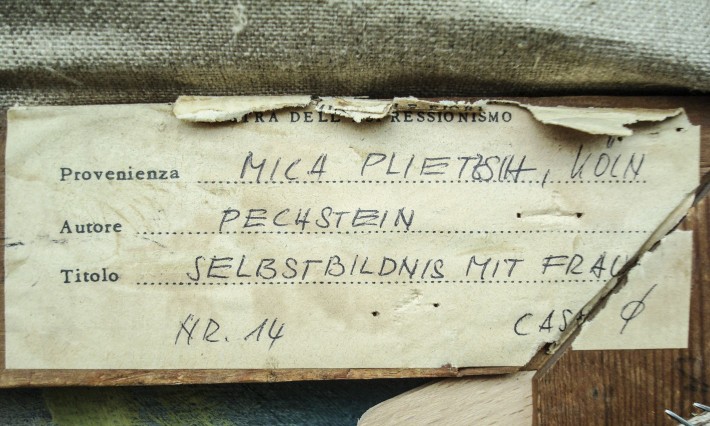 MOSTRA DELL' ESPRESSIONISMO
Provenienza MICA PLIETZSCH, KÖLN
Autore PECHSTEIN
Titolo SELBSTBILDNIS MIT FRAU
NR. 14 CASA